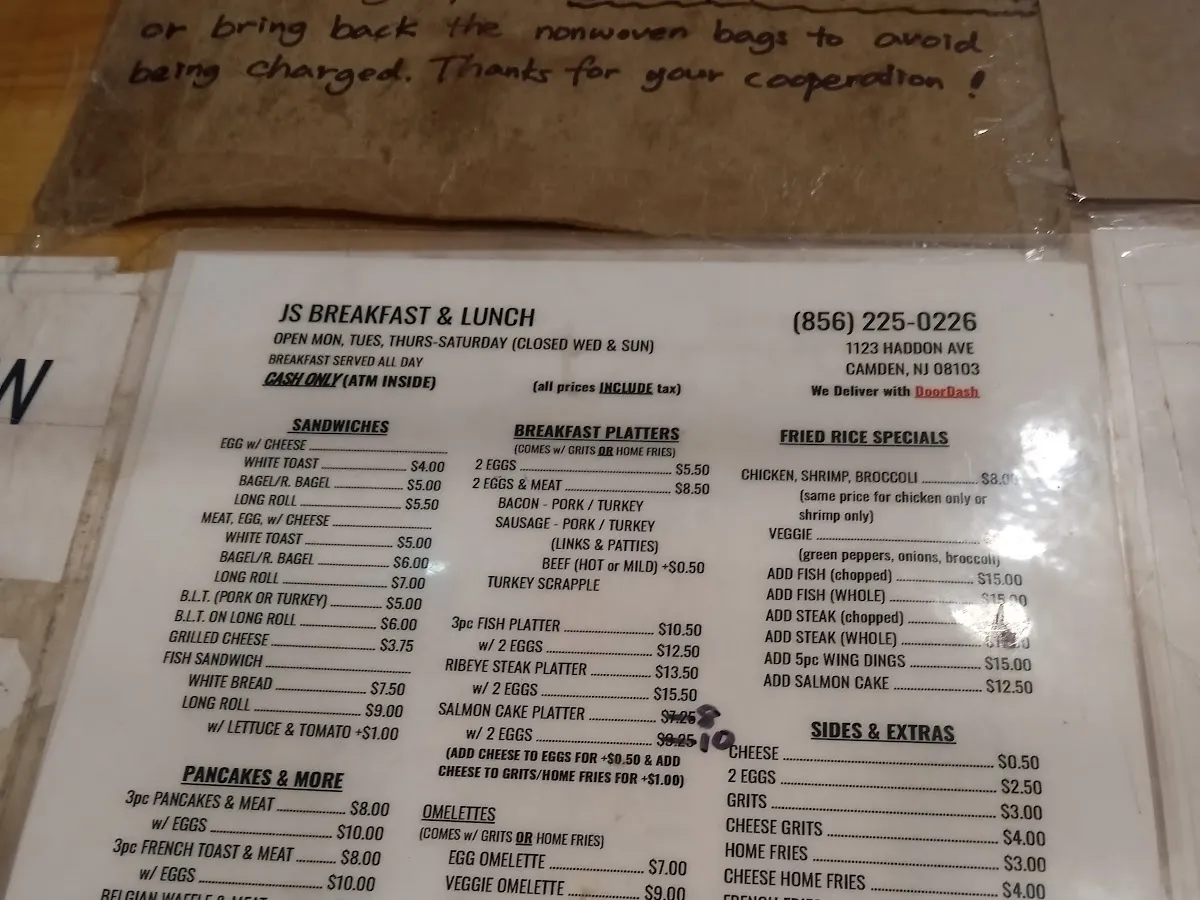 or bring back the nonwoven bags to avoid
being charged. Thanks for your cooperation !
W
JS BREAKFAST & LUNCH
OPEN MON, TUES, THURS-SATURDAY (CLOSED WED & SUN)
BREAKFAST SERVED ALL DAY
CASH ONLY (ATM INSIDE)
(all prices INCLUDE tax)
(856) 225-0226
1123 HADDON AVE
CAMDEN, NJ 08103
We Deliver with DoorDash
SANDWICHES
EGG w/ CHEESE
WHITE TOAST $4.00
BAGEL/R. BAGEL $5.00
LONG ROLL $5.50
MEAT, EGG, w/ CHEESE
WHITE TOAST $5.00
BAGEL/R. BAGEL $6.00
LONG ROLL $7.00
B.L.T. (PORK OR TURKEY) $5.00
B.L.T. ON LONG ROLL $6.00
GRILLED CHEESE $3.75
FISH SANDWICH
WHITE BREAD $7.50
LONG ROLL $9.00
w/ LETTUCE & TOMATO +$1.00
PANCAKES & MORE
3pc PANCAKES & MEAT $8.00
w/ EGGS $10.00
3pc FRENCH TOAST & MEAT $8.00
w/ EGGS $10.00
BELGIAN WAFFLE & MEAT
BREAKFAST PLATTERS
(COMES w/ GRITS OR HOME FRIES)
2 EGGS $5.50
2 EGGS & MEAT $8.50
BACON - PORK / TURKEY
SAUSAGE - PORK / TURKEY
(LINKS & PATTIES)
BEEF (HOT or MILD) +$0.50
TURKEY SCRAPPLE
3pc FISH PLATTER $10.50
w/ 2 EGGS $12.50
RIBEYE STEAK PLATTER $13.50
w/ 2 EGGS $15.50
SALMON CAKE PLATTER $7.25 8
w/ 2 EGGS $9.25 10
(ADD CHEESE TO EGGS FOR +$0.50 & ADD
CHEESE TO GRITS/HOME FRIES FOR +$1.00)
OMELETTES
(COMES w/ GRITS OR HOME FRIES)
EGG OMELETTE $7.00
VEGGIE OMELETTE $9.00
FRIED RICE SPECIALS
CHICKEN, SHRIMP, BROCCOLI $8.00
(same price for chicken only or
shrimp only)
VEGGIE
(green peppers, onions, broccoli)
ADD FISH (chopped) $15.00
ADD FISH (WHOLE) $15.00
ADD STEAK (chopped)
ADD STEAK (WHOLE)
ADD 5pc WING DINGS $15.00
ADD SALMON CAKE $12.50
SIDES & EXTRAS
CHEESE $0.50
2 EGGS $2.50
GRITS $3.00
CHEESE GRITS $4.00
HOME FRIES $3.00
CHEESE HOME FRIES $4.00